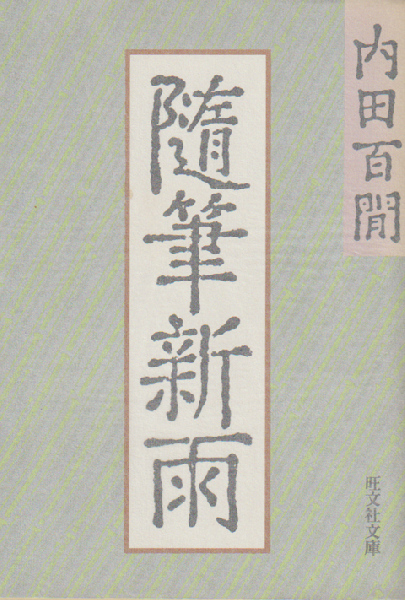 内田百閒
隨筆新雨
旺文社文庫